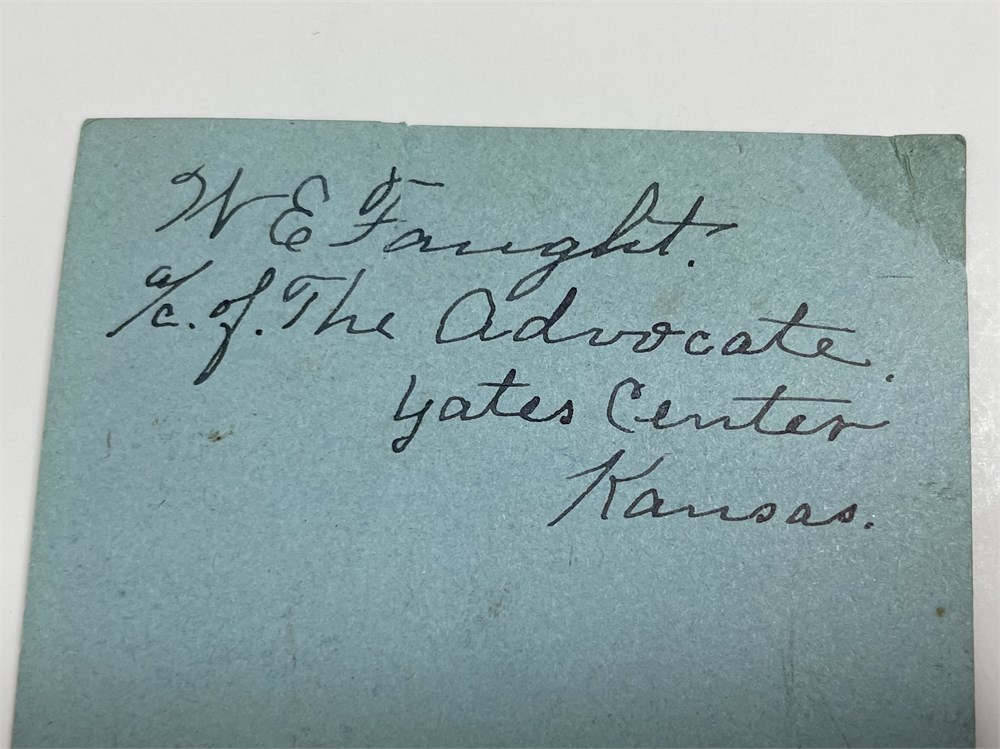 W E Faught.
a/c. of. The Advocate.
Yates Center
Kansas.